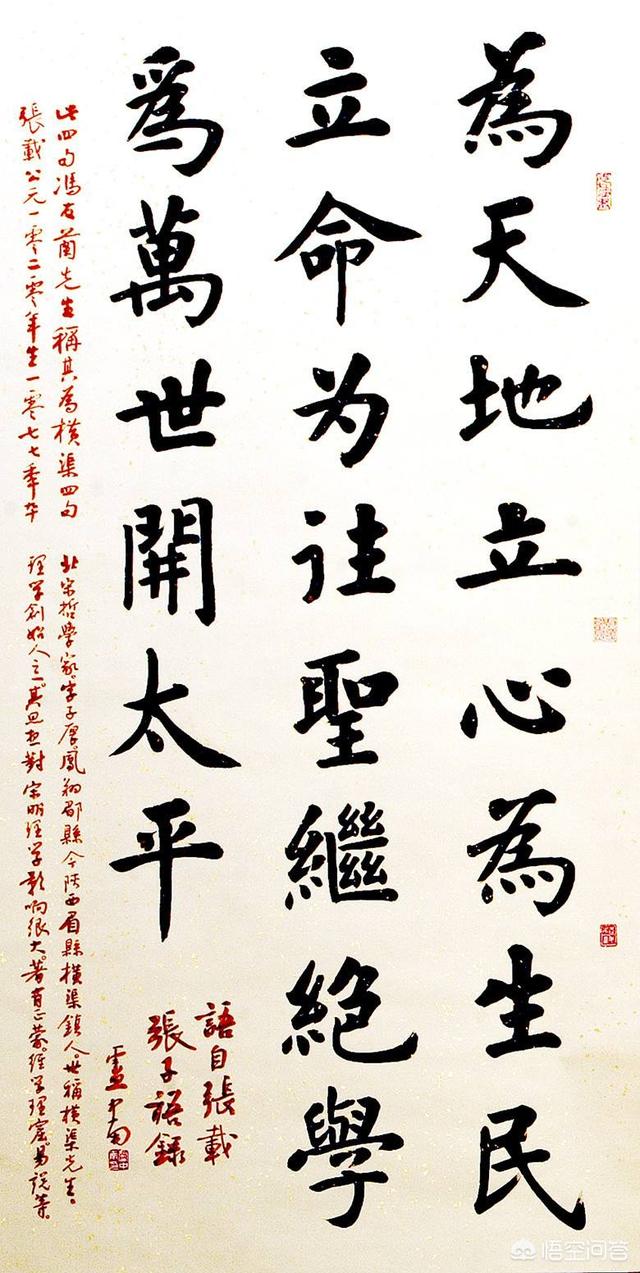 為天地立心為生民
立命为往聖繼絕學
爲萬世開太平
語自張載
張子語録
盧中南
此四句馮友蘭先生稱其為橫渠四句
張載公元一零二零年生一零七七年卒
北宋哲學家字子厚鳳翔郿縣今陝西眉縣橫渠鎮人世稱橫渠先生
理学創始人之一其思想對宋明理学影响很大著有正蒙經学理窟易説等
悟空问答